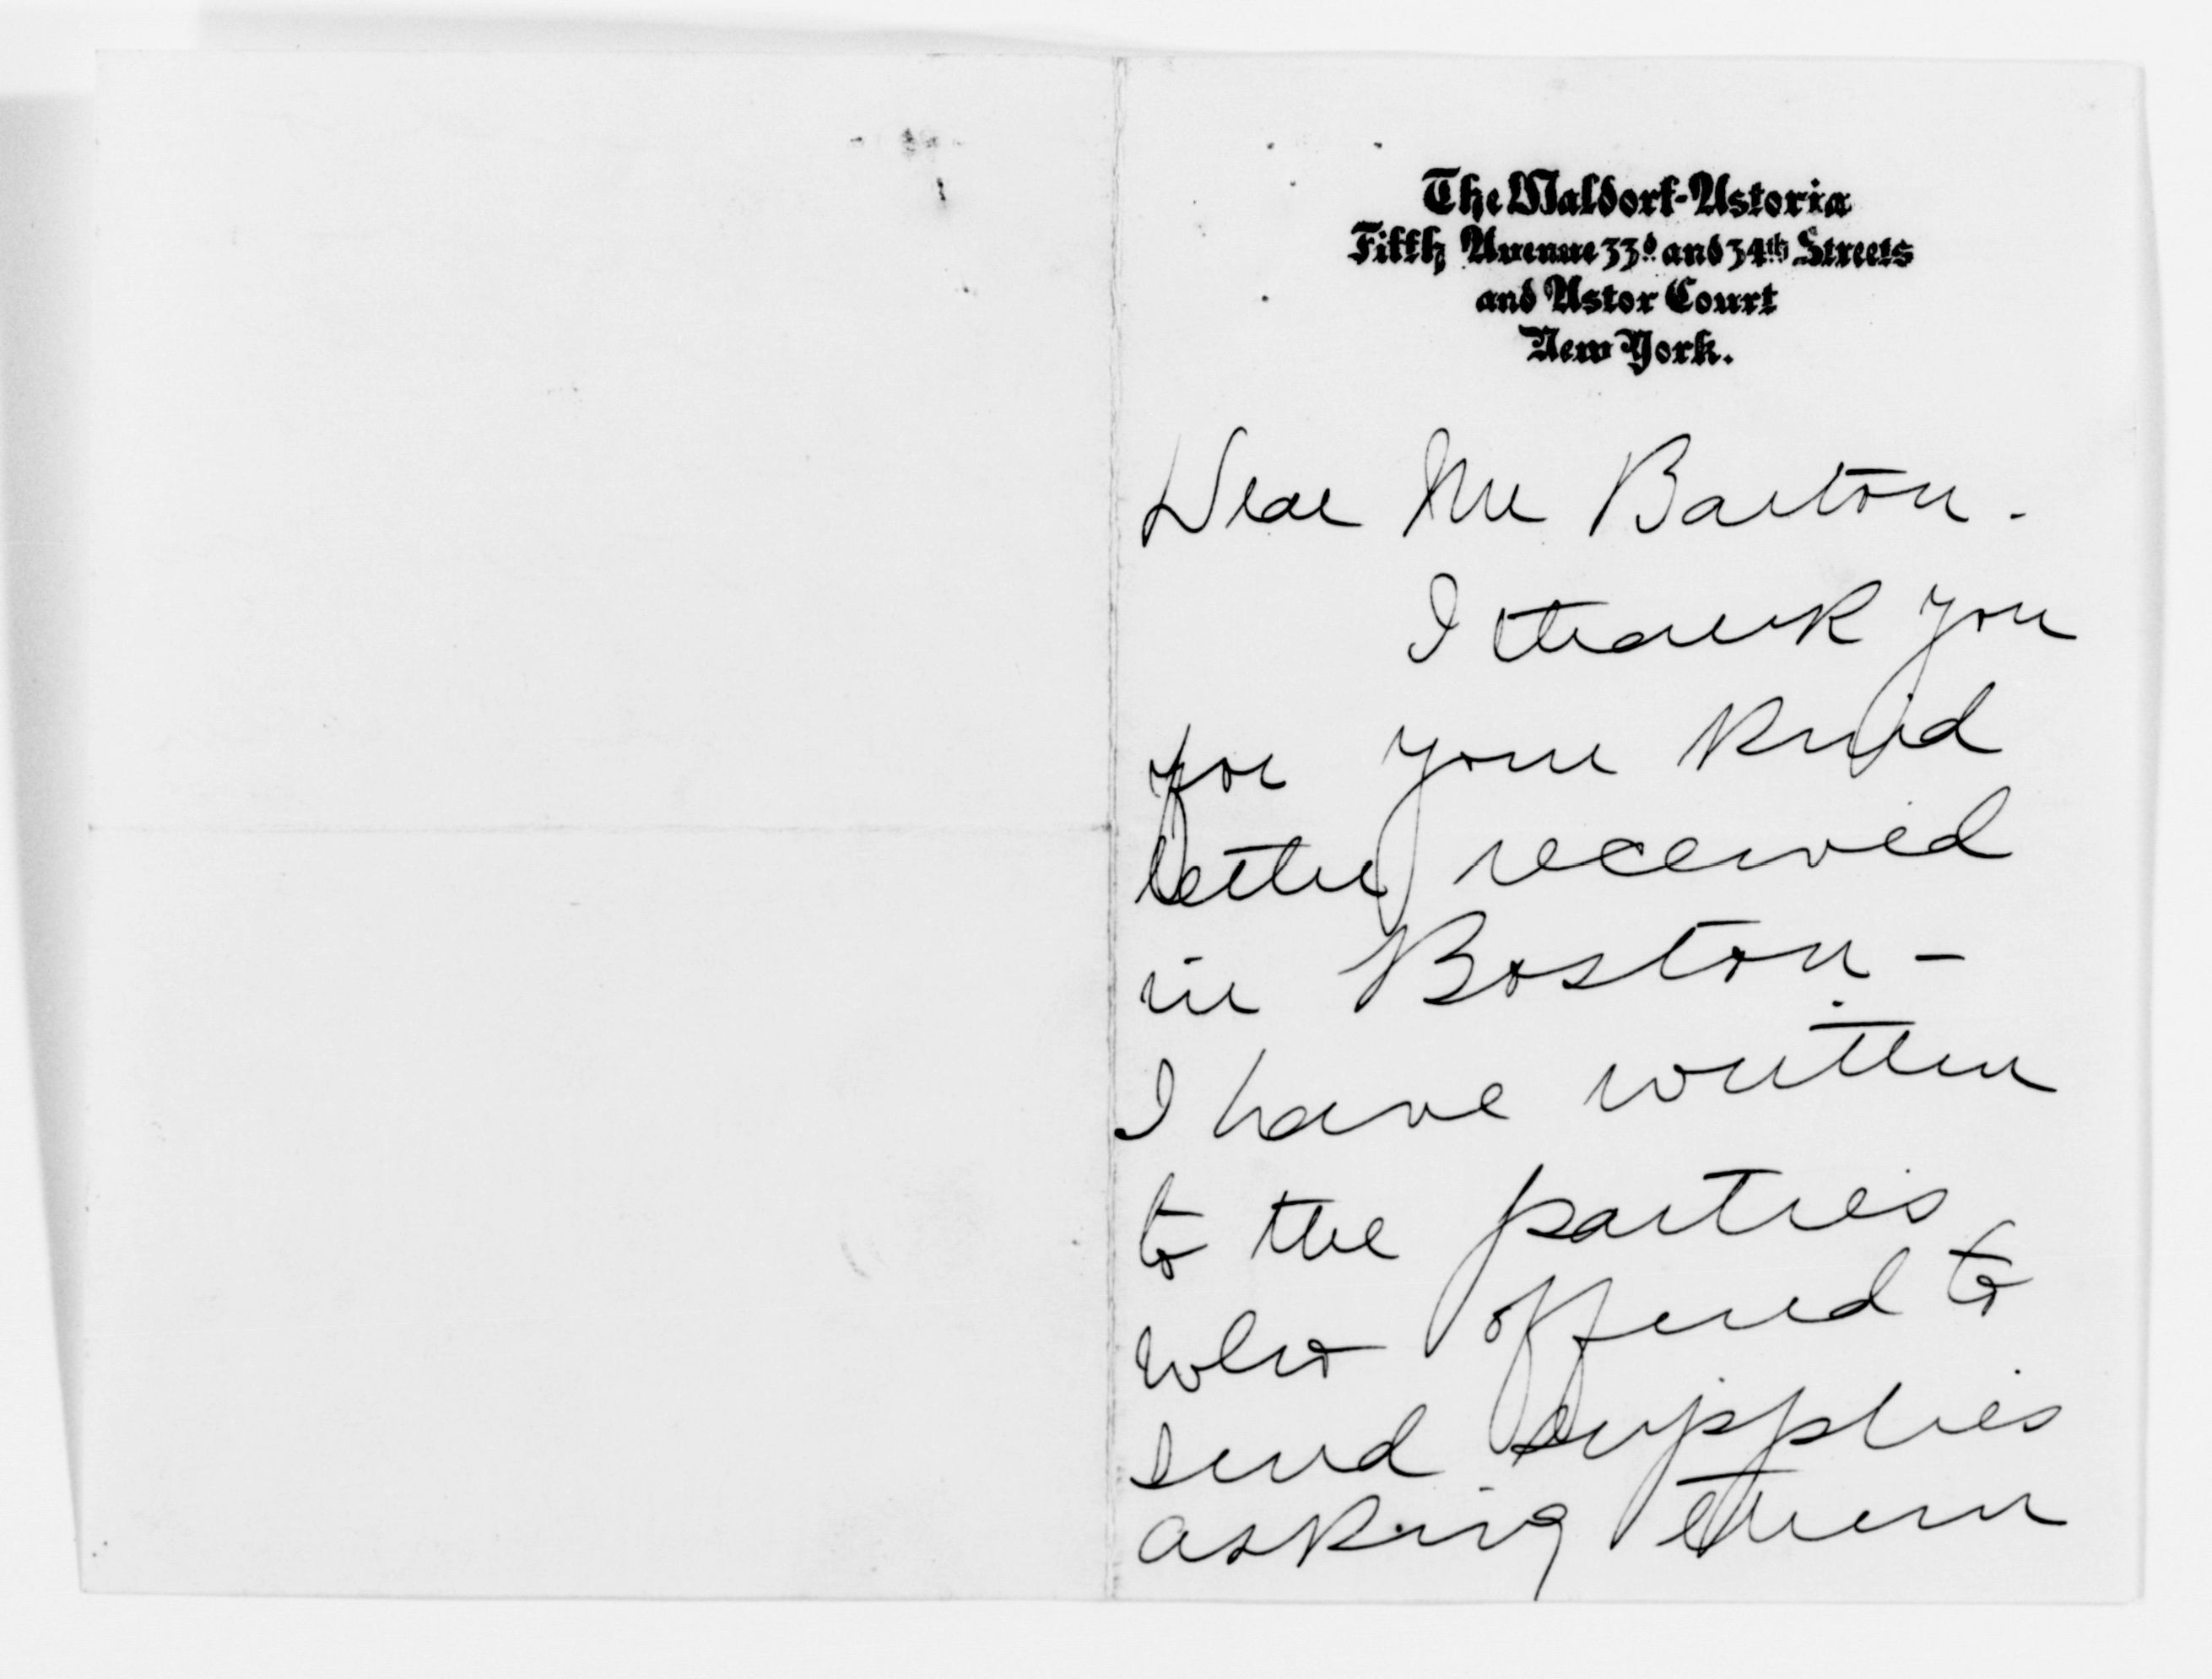 The Waldorf-Astoria
Fifth Avenue 33d and 34th Streets
and Astor Court
New York.
Dear Mr Barton.
I thank you
for your kind
letter received
in Boston -
I have written
to the parties
who offered to
send supplies
asking them